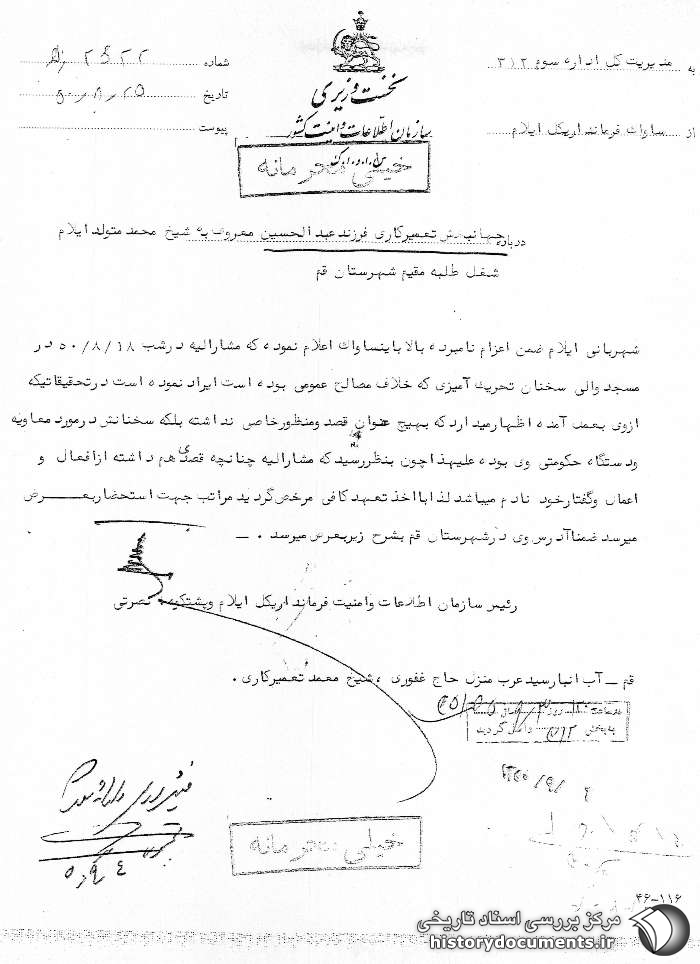 به مدیریت کل اداره سوم ۳۱۲
از ساواک فرمانداریکل ایلام
نخست وزیری
سازمان اطلاعات و امنیت کشور
شماره
تاریخ ۵۰/۸/۲۵
پیوست
خیلی محرمانه
درباره جهانبخش تعمیرکاری فرزند عبدالحسین معروف به شیخ محمد متولد ایلام
شغل طلبه مقیم شهرستان قم
شهربانی ایلام ضمن اعزام نامبرده بالا باینساواک اعلام نموده که مشارالیه در شب ۵۰/۸/۱۸ در
مسجد والی سخنان تحریک آمیزی که خلاف مصالح عمومی بوده است ایراد نموده است در تحقیقاتیکه
ازوی بعمل آمده اظهار میدارد که بهیچ عنوان قصد ومنظور خاص نداشته بلکه سخنانش در مورد معاویه
ودستگاه حکومتی وی بوده علیهذا چون بنظر رسید که مشارالیه چنانچه قصدی هم داشته از افعال و
اعمال وگفتار خود نادم میباشد لذا با اخذ تعهد کافی مرخص گردید مراتب جهت استحضار بعرض
میرسد ضمنا آدرس وی در شهرستان قم بشرح زیر بعرض میرسد . ـ
رئیس سازمان اطلاعات وامنیت فرمانداریکل ایلام وپشتکوه . نصرتی
قم ـ آب انبار سید عرب منزل حاج غفوری ، شیخ محمد تعمیرکاری .
به بخش ۳۱۲ واصل گردید
۵۰/۹/۴
خیلی محرمانه
۴۶-۱۱۶
مرکز بررسی اسناد تاریخی
historydocuments.ir